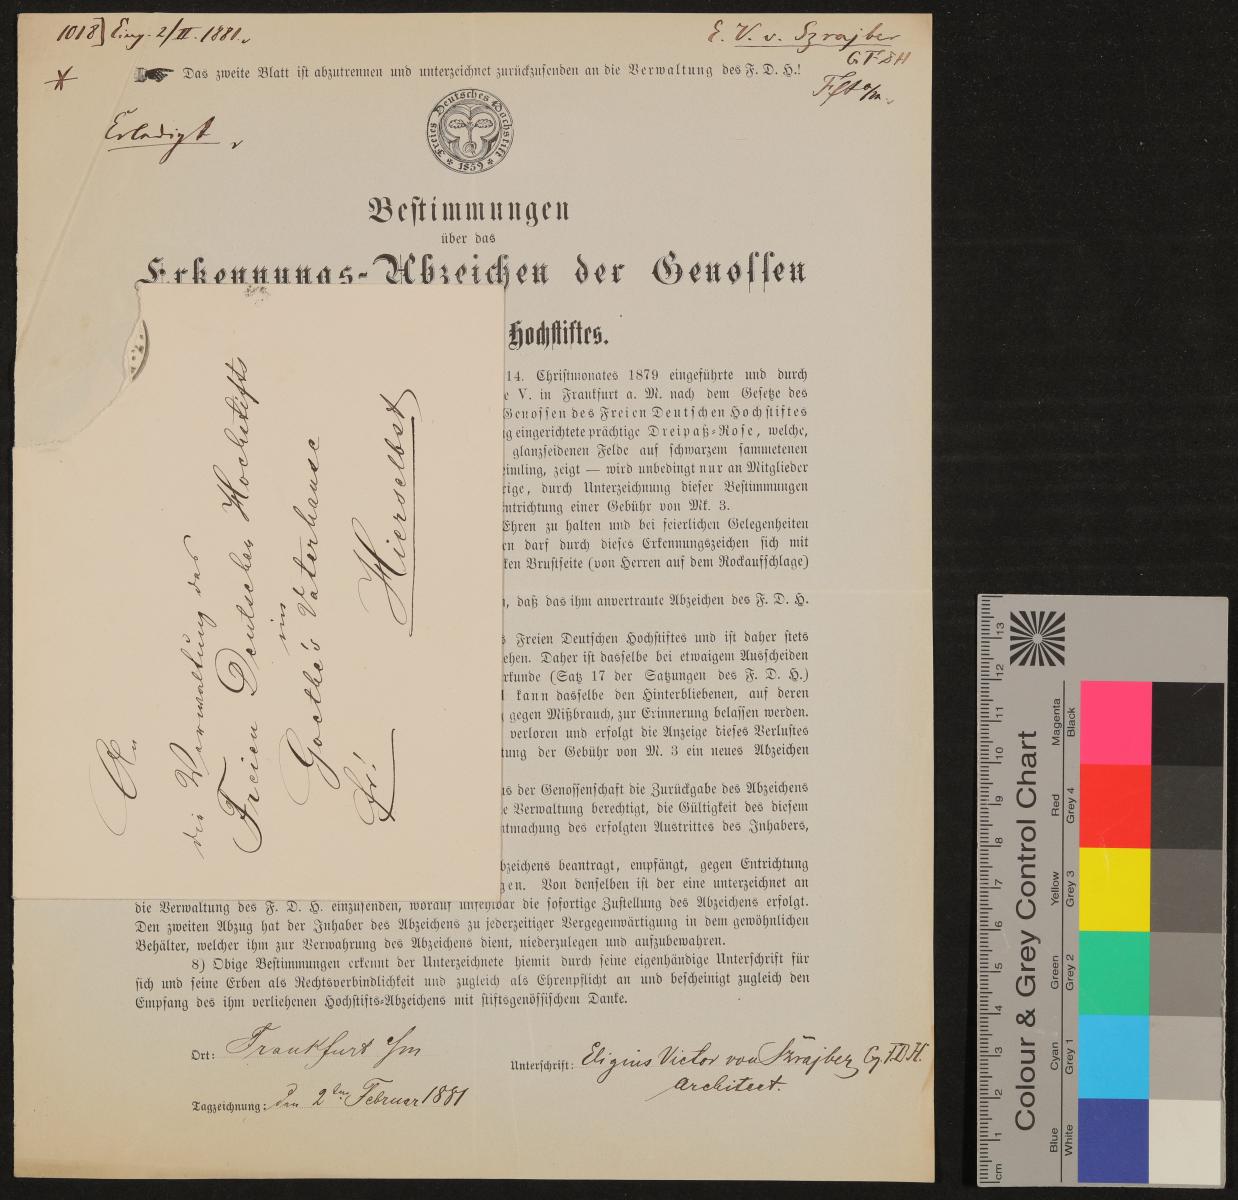 1018] Eing. 2/II. 1881.
E. V. v. Szrajber
G F D H
Das zweite Blatt ist abzutrennen und unterzeichnet zurückzusenden an die Verwaltung des F. D. H.!
Erledigt
Freies Deutsches Hochstift
1859
Bestimmungen
über das
Erkennungs-Abzeichen der Genossen
Hochstiftes.
14. Christmonates 1879 eingeführte und durch
e V. in Frankfurt a. M. nach dem Gesetze des
Genossen des Freien Deutschen Hochstiftes
g eingerichtete prächtige Dreipaß-Rose, welche,
glanzseidenen Felde auf schwarzem sammetenen
eimling, zeigt — wird unbedingt nur an Mitglieder
eige, durch Unterzeichnung dieser Bestimmungen
ntrichtung einer Gebühr von Mk. 3.
Ehren zu halten und bei feierlichen Gelegenheiten
en darf durch dieses Erkennungszeichen sich mit
ken Brustseite (von Herren auf dem Rockaufschlage)
, daß das ihm anvertraute Abzeichen des F. D. H.
s Freien Deutschen Hochstiftes und ist daher stets
ehen. Daher ist dasselbe bei etwaigem Ausscheiden
rkunde (Satz 17 der Satzungen des F. D. H.)
kann dasselbe den Hinterbliebenen, auf deren
gegen Mißbrauch, zur Erinnerung belassen werden.
verloren und erfolgt die Anzeige dieses Verlustes
tung der Gebühr von M. 3 ein neues Abzeichen
us der Genossenschaft die Zurückgabe des Abzeichens
e Verwaltung berechtigt, die Gültigkeit des diesem
ntmachung des erfolgten Austrittes des Inhabers,
bzeichens beantragt, empfängt, gegen Entrichtung
gen. Von denselben ist der eine unterzeichnet an
die Verwaltung des F. D. H. einzusenden, worauf unfehlbar die sofortige Zustellung des Abzeichens erfolgt.
Den zweiten Abzug hat der Inhaber des Abzeichens zu jederzeitiger Vergegenwärtigung in dem gewöhnlichen
Behälter, welcher ihm zur Verwahrung des Abzeichens dient, niederzulegen und aufzubewahren.
8) Obige Bestimmungen erkennt der Unterzeichnete hiemit durch seine eigenhändige Unterschrift für
sich und seine Erben als Rechtsverbindlichkeit und zugleich als Ehrenpflicht an und bescheinigt zugleich den
Empfang des ihm verliehenen Hochstifts-Abzeichens mit stiftsgenössischem Danke.
Ort: Frankfurt a/m
Unterschrift: Eligius Victor von Szrajber Gg. F.D.H.
Architect.
Tagzeichnung: den 2ten Februar 1881
An
die Verwaltung des
Freien Deutschen Hochstifts
im
Goethe's Vaterhause
Fr!
Hierselbst
Colour & Grey Control Chart
Magenta
Black
Red
Grey 4
Yellow
Grey 3
Green
Grey 2
Cyan
Grey 1
Blue
White
cm 1 2 3 4 5 6 7 8 9 10 11 12 13